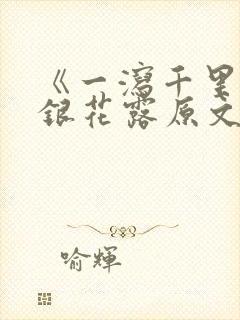 《一泻千里
银花露原文
喻輝